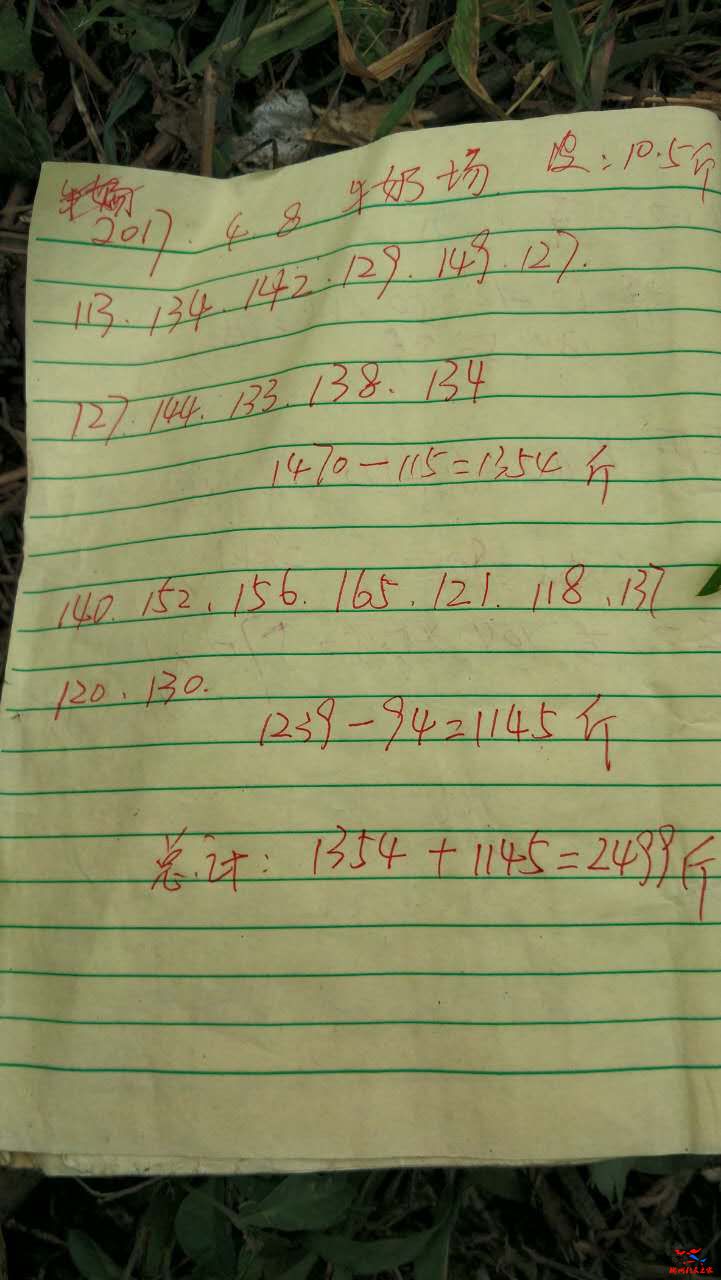 2017.4.8 牛奶场 皮:10.5斤
113.134.142.129.149.127.
127.144.133.138.134
1470-115=1354斤
140.152.156.165.121.118.137
120.130.
1239-94=1145斤
总计:1354+1145=2499斤